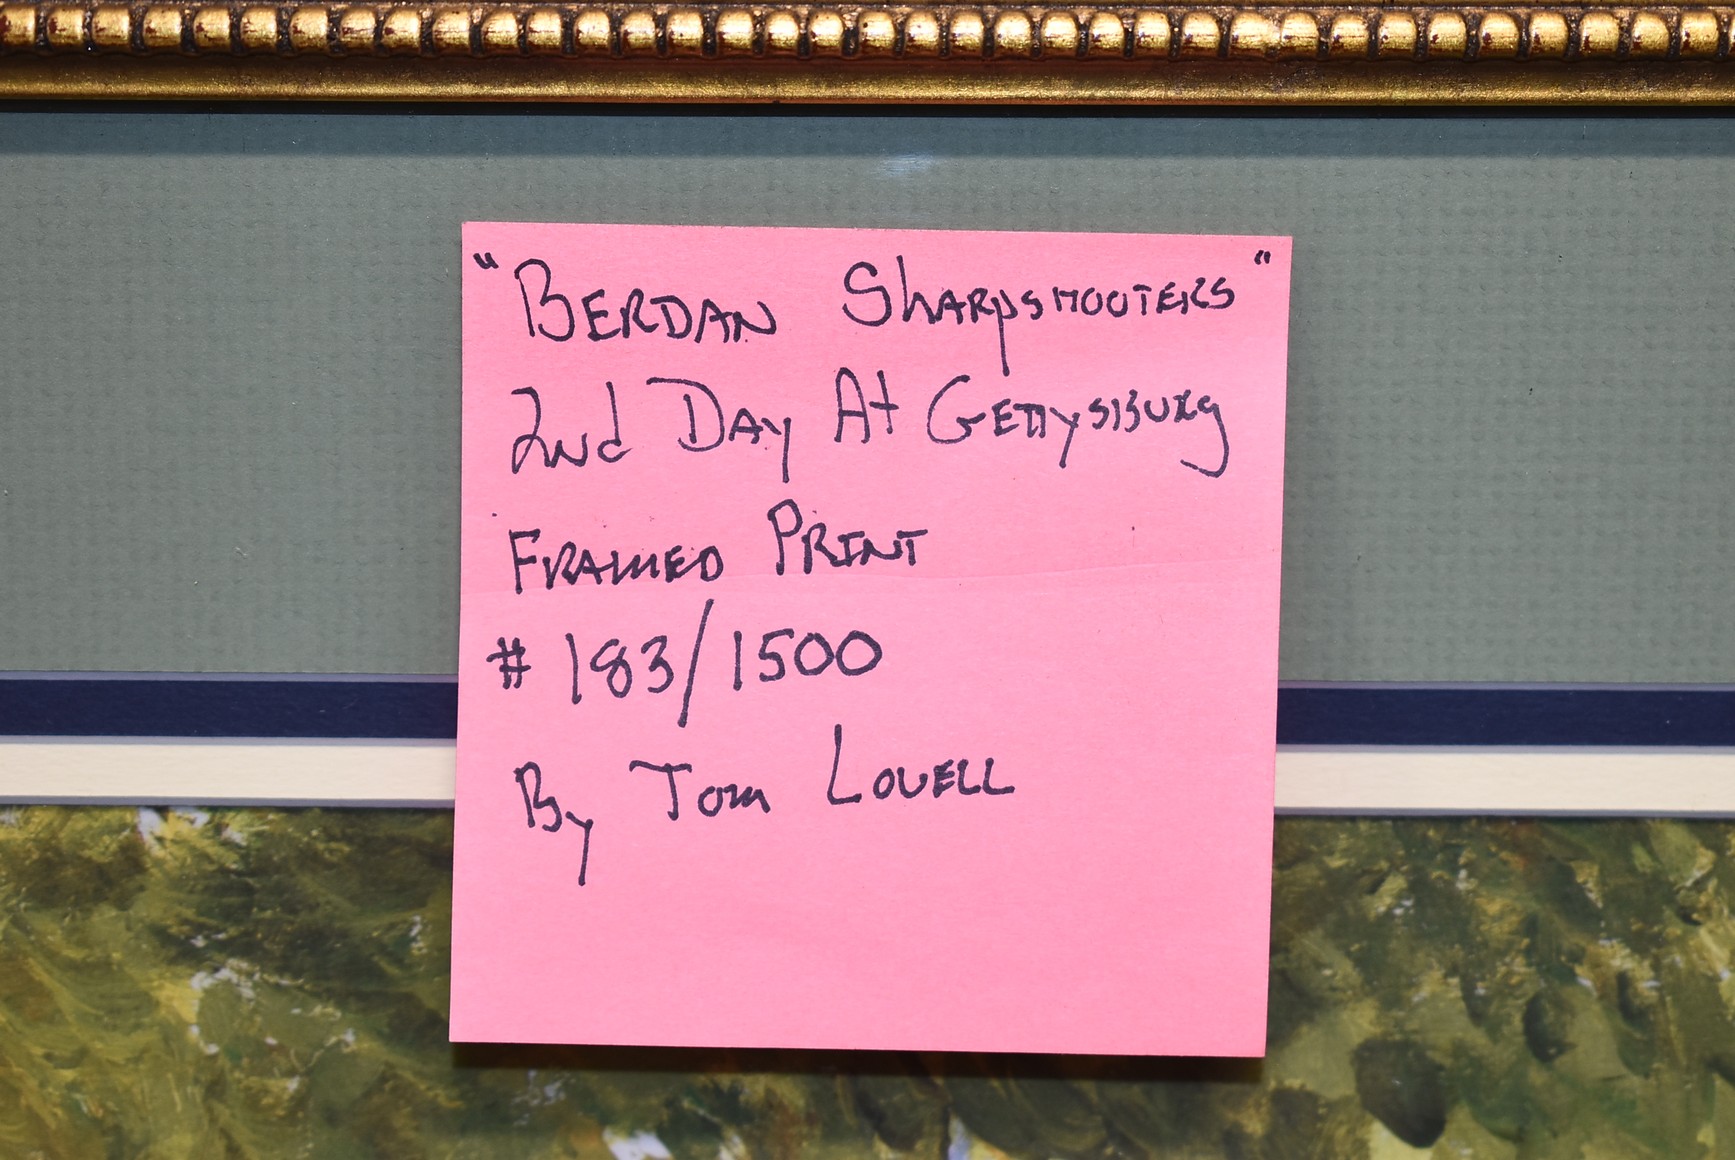 "Berdan Sharpshooters"
2nd Day At Gettysburg
Framed Print
# 183/1500
By Tom Lovell